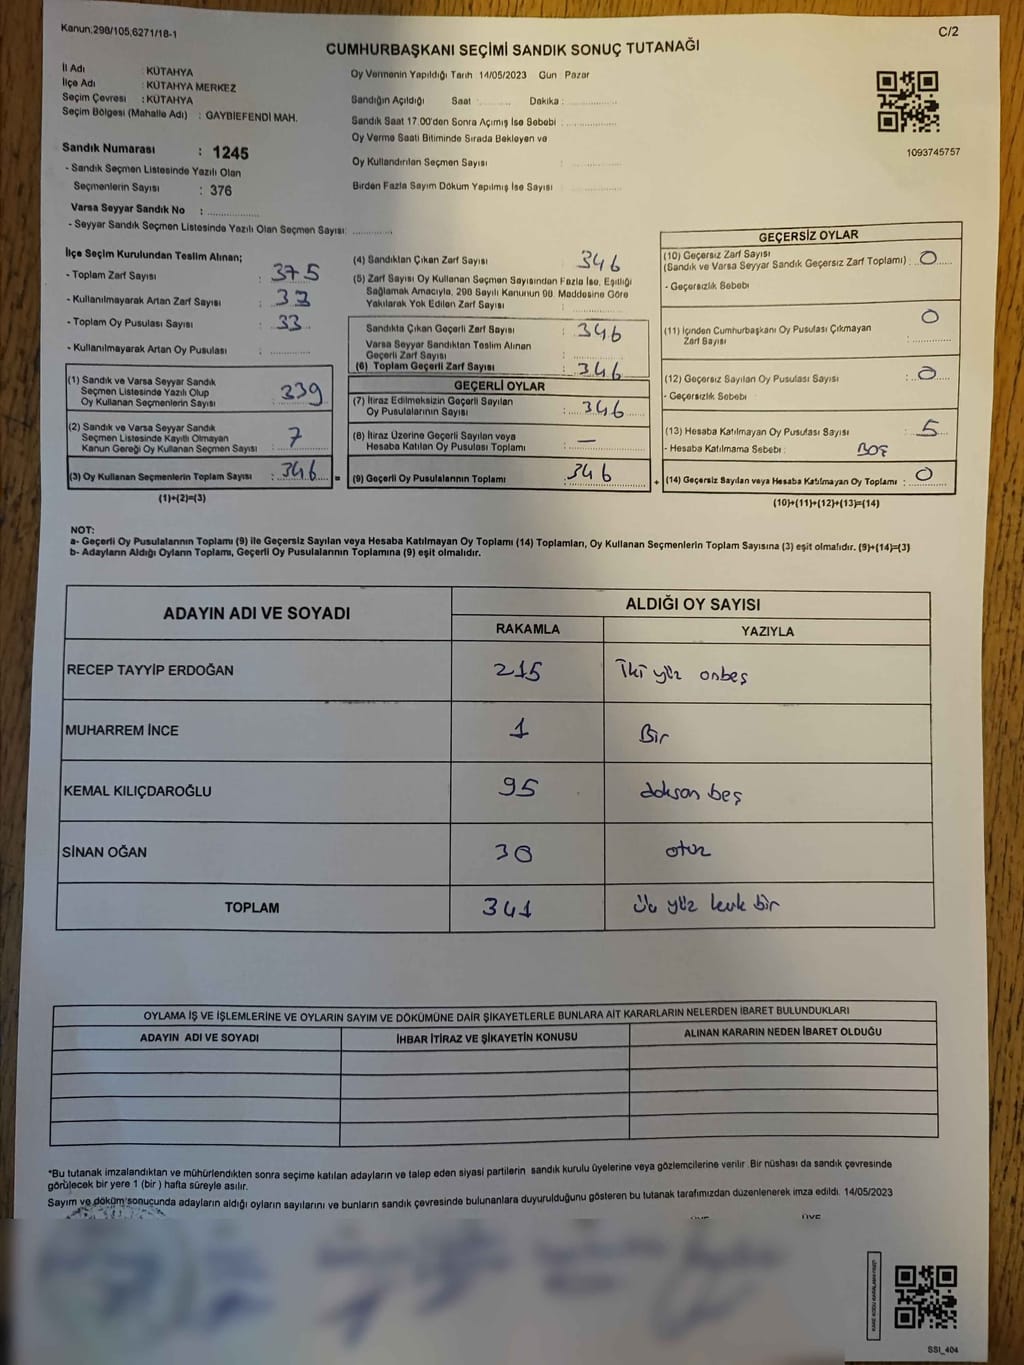 Kanun:298/105,6271/18-1
C/2
CUMHURBAŞKANI SEÇİMİ SANDIK SONUÇ TUTANAĞI
İl Adı : KÜTAHYA
İlçe Adı : KÜTAHYA MERKEZ
Seçim Çevresi : KÜTAHYA
Seçim Bölgesi (Mahalle Adı) : GAYBİEFENDİ MAH.
Sandık Numarası : 1245
- Sandık Seçmen Listesinde Yazılı Olan
Seçmenlerin Sayısı : 376
Varsa Seyyar Sandık No :
- Seyyar Sandık Seçmen Listesinde Yazılı Olan Seçmen Sayısı:
Oy Vermenin Yapıldığı Tarih 14/05/2023 Gün Pazar
Sandığın Açıldığı Saat : Dakika :
Sandık Saat 17.00'den Sonra Açımış İse Sebebi :
Oy Verme Saati Bitiminde Sırada Bekleyen ve
Oy Kullandırılan Seçmen Sayısı :
Birden Fazla Sayım Döküm Yapılmış İse Sayısı :
1093745757
İlçe Seçim Kurulundan Teslim Alınan;
- Toplam Zarf Sayısı : 375
- Kullanılmayarak Artan Zarf Sayısı : 33
- Toplam Oy Pusulası Sayısı : 33
- Kullanılmayarak Artan Oy Pusulası :
(1) Sandık ve Varsa Seyyar Sandık
Seçmen Listesinde Yazılı Olup
Oy Kullanan Seçmenlerin Sayısı : 339
(2) Sandık ve Varsa Seyyar Sandık
Seçmen Listesinde Kayıtlı Olmayan
Kanun Gereği Oy Kullanan Seçmen Sayısı : 7
(3) Oy Kullanan Seçmenlerin Toplam Sayısı : 346
(1)+(2)=(3)
(4) Sandıktan Çıkan Zarf Sayısı : 346
(5) Zarf Sayısı Oy Kullanan Seçmen Sayısından Fazla İse, Eşitliği
Sağlamak Amacıyla, 298 Sayılı Kanunun 98. Maddesine Göre
Yakılarak Yok Edilen Zarf Sayısı :
Sandıkta Çıkan Geçerli Zarf Sayısı : 346
Varsa Seyyar Sandıktan Teslim Alınan
Geçerli Zarf Sayısı :
(6) Toplam Geçerli Zarf Sayısı : 346
GEÇERLİ OYLAR
(7) İtiraz Edilmeksizin Geçerli Sayılan
Oy Pusulalarının Sayısı : 346
(8) İtiraz Üzerine Geçerli Sayılan veya
Hesaba Katılan Oy Pusulası Toplamı : —
= (9) Geçerli Oy Pusulalarının Toplamı : 346
GEÇERSİZ OYLAR
(10) Geçersiz Zarf Sayısı
(Sandık ve Varsa Seyyar Sandık Geçersiz Zarf Toplamı) : 0
- Geçersizlik Sebebi
(11) İçinden Cumhurbaşkanı Oy Pusulası Çıkmayan
Zarf Sayısı : 0
(12) Geçersiz Sayılan Oy Pusulası Sayısı : 0
- Geçersizlik Sebebi
(13) Hesaba Katılmayan Oy Pusulası Sayısı : 5
- Hesaba Katılmama Sebebi : BOŞ
+ (14) Geçersiz Sayılan veya Hesaba Katılmayan Oy Toplamı : 0
(10)+(11)+(12)+(13)=(14)
NOT:
a- Geçerli Oy Pusulalarının Toplamı (9) ile Geçersiz Sayılan veya Hesaba Katılmayan Oy Toplamı (14) Toplamları, Oy Kullanan Seçmenlerin Toplam Sayısına (3) eşit olmalıdır. (9)+(14)=(3)
b- Adayların Aldığı Oyların Toplamı, Geçerli Oy Pusulalarının Toplamına (9) eşit olmalıdır.
ADAYIN ADI VE SOYADI
ALDIĞI OY SAYISI
RAKAMLA YAZIYLA
RECEP TAYYİP ERDOĞAN 215 iki yüz onbeş
MUHARREM İNCE 1 Bir
KEMAL KILIÇDAROĞLU 95 doksan beş
SİNAN OĞAN 30 otuz
TOPLAM 341 üç yüz kırk bir
OYLAMA İŞ VE İŞLEMLERİNE VE OYLARIN SAYIM VE DÖKÜMÜNE DAİR ŞİKAYETLERLE BUNLARA AİT KARARLARIN NELERDEN İBARET BULUNDUKLARI
ADAYIN ADI VE SOYADI İHBAR İTİRAZ VE ŞİKAYETİN KONUSU ALINAN KARARIN NEDEN İBARET OLDUĞU
*Bu tutanak imzalandıktan ve mühürlendikten sonra seçime katılan adayların ve talep eden siyasi partilerin sandık kurulu üyelerine veya gözlemcilerine verilir. Bir nüshası da sandık çevresinde
görülecek bir yere 1 (bir) hafta süreyle asılır.
Sayım ve döküm sonucunda adayların aldığı oyların sayılarını ve bunların sandık çevresinde bulunanlara duyurulduğunu gösteren bu tutanak tarafımızdan düzenlenerek imza edildi. 14/05/2023
SSI_404